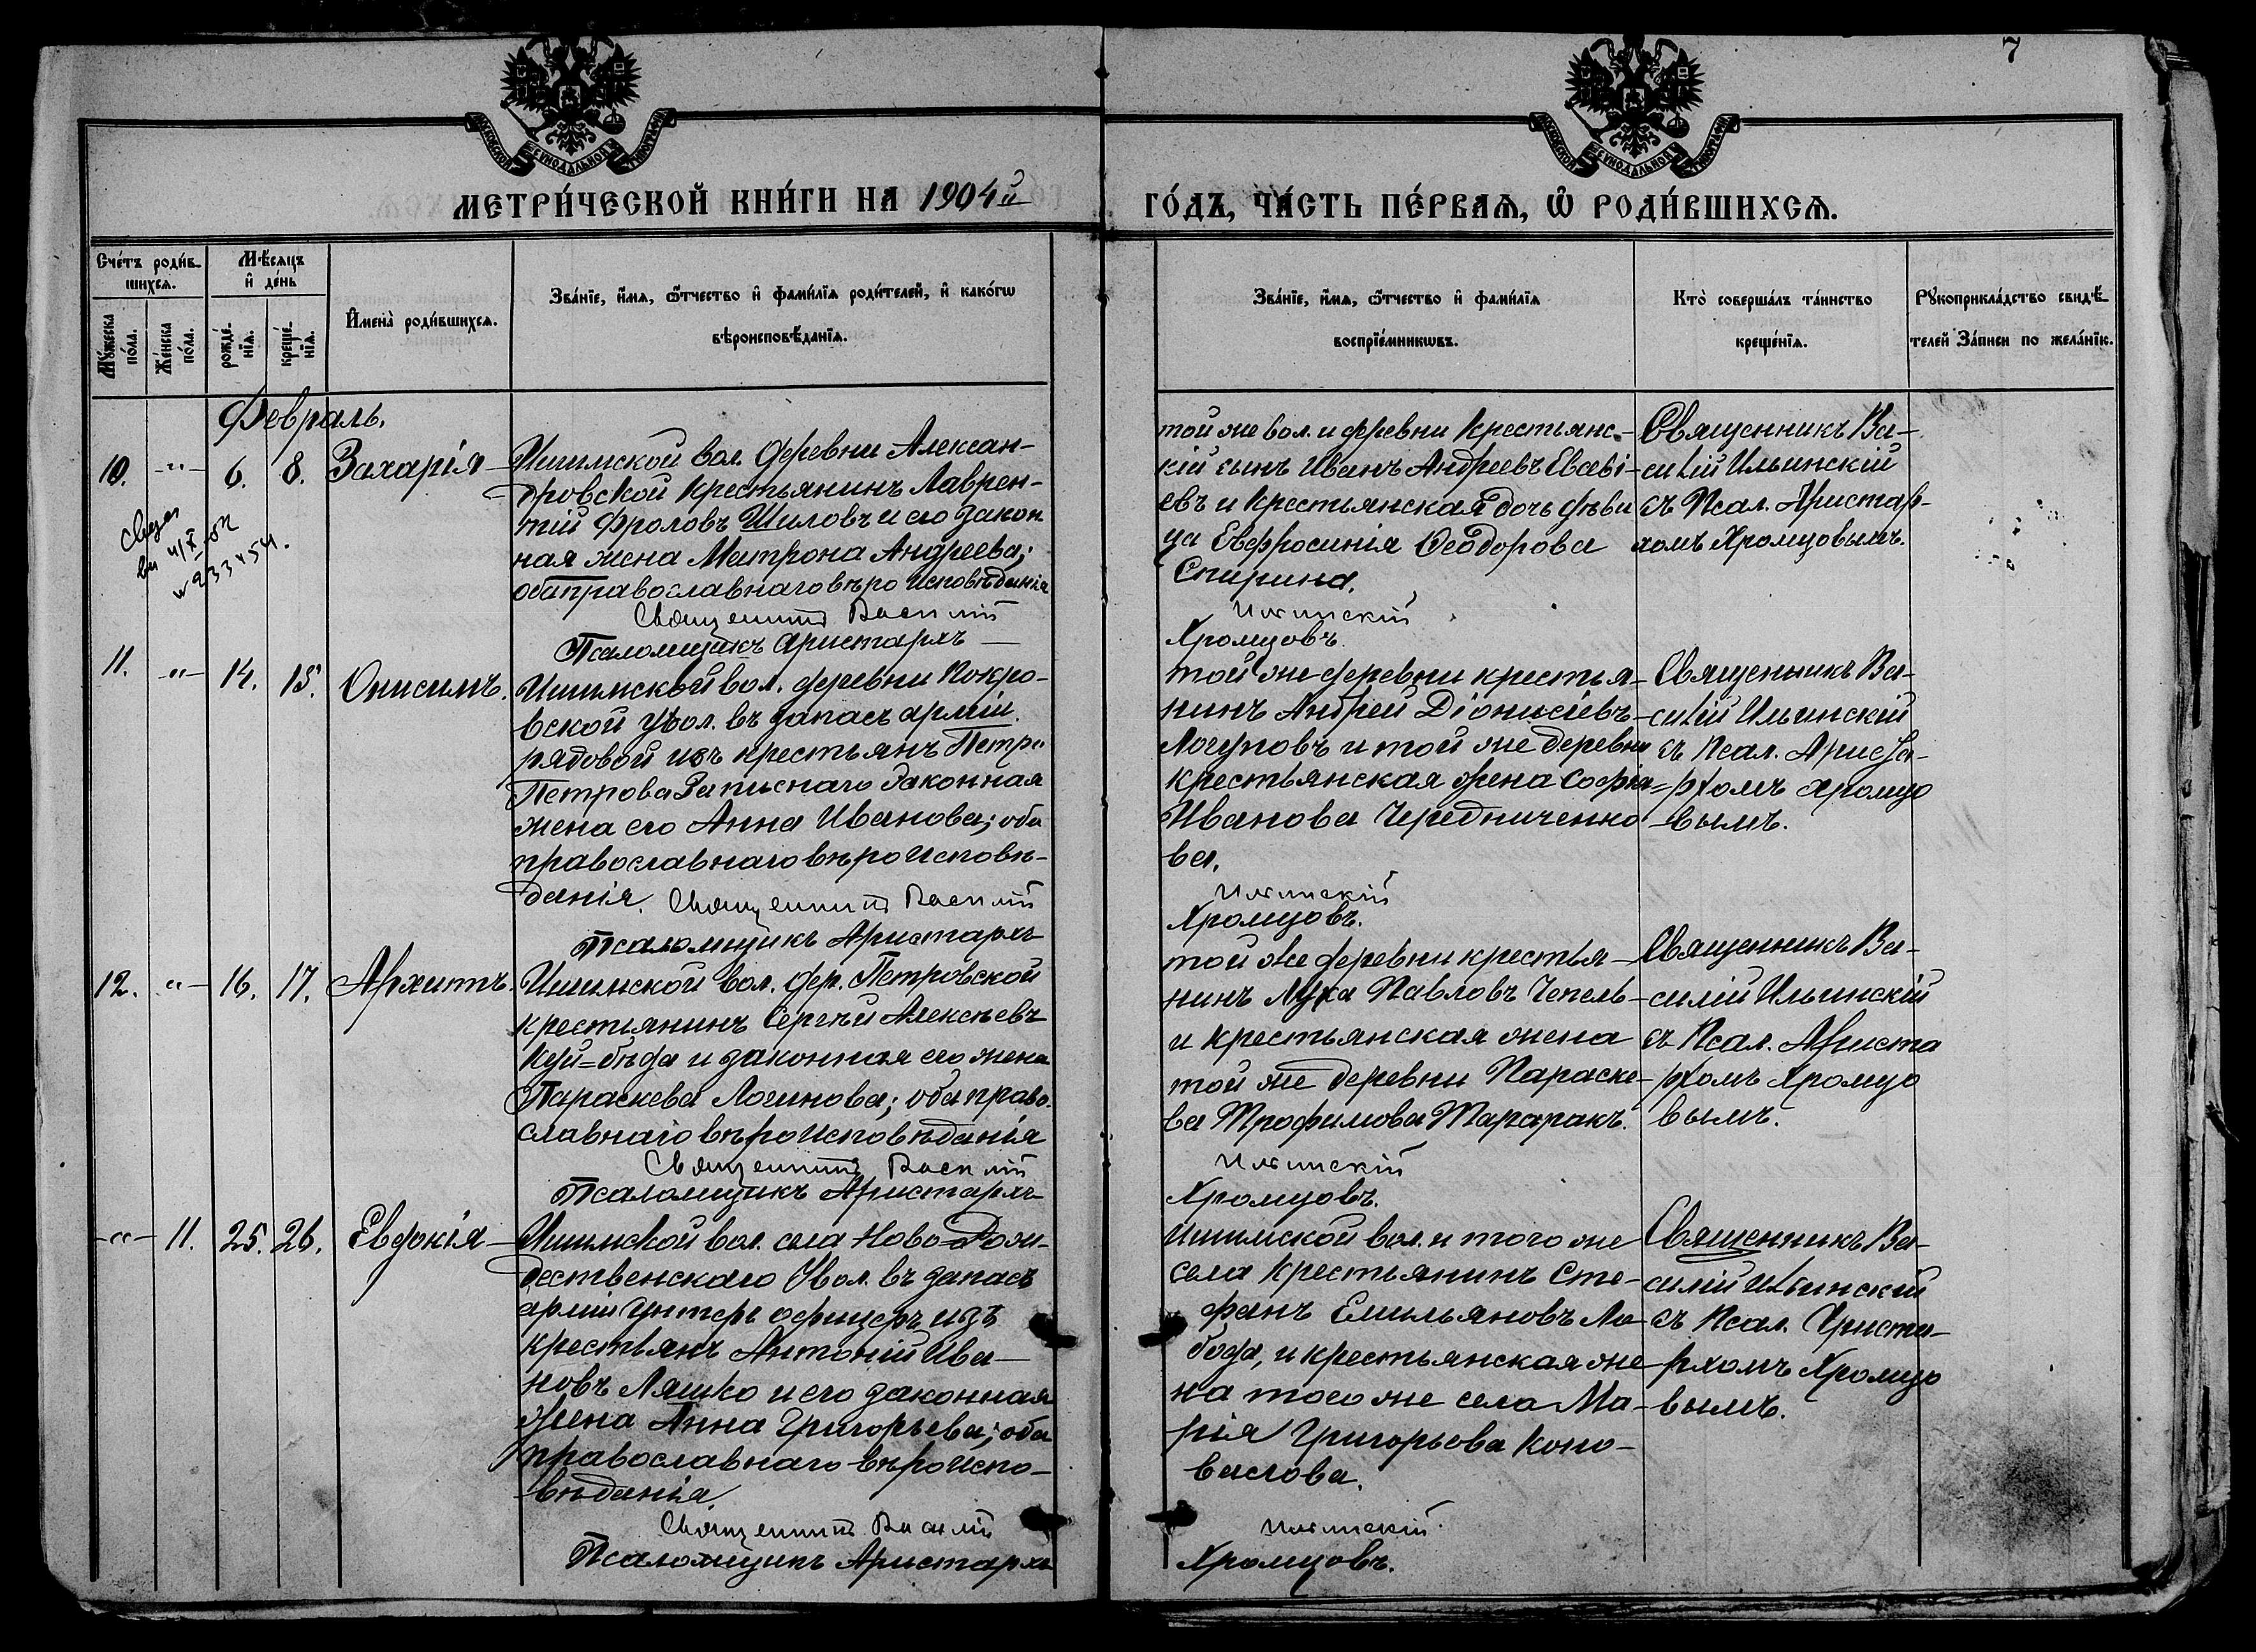 7
МЕТРИ́ЧЕСКОЙ КНИ́ГИ НА 1904й
ГО́ДЪ, ЧА́СТЬ ПЕ́РВАѦ, Ѡ҆ РОДИ́ВШИХСѦ.
Сче́тъ роди́в-
шихсѧ.
Мѣ́сѧцъ
и҆ де́нь
Му́жеска
по́ла.
Же́нска
по́ла.
рожде́-
нїѧ.
креще́-
нїѧ.
И҆мена̀ роди́вшихсѧ.
Зва́нїе, и҆́мѧ, ѻ҆́тчество и҆ фами́лїѧ роди́телей, и҆ како́гѡ
вѣроисповѣ́данїѧ.
Зва́нїе, и҆́мѧ, ѻ҆́тчество и҆ фами́лїѧ
воспрїе́мникѡвъ.
Кто̀ соверша́лъ та́инство
креще́нїѧ.
Рꙋкоприкла́дство свидѣ́-
телей за́писи по жела́нїю.
Февраль.
10. -"- 6. 8. Захарія
Ишимской вол. деревни Алексан-
дровской крестьянинъ Лаврен-
тій Фроловъ Шиловъ и его закон
ная жена Матрона Андреева;
оба православнаго вѣроисповѣданія
Священникъ Василій
Псаломщикъ Аристархъ
той же вол. и деревни крестьянс-
кій сынъ Иванъ Андреевъ Евсеві-
евъ и крестьянская дочь дѣви
ца Евфросинія Ѳеодорова
Спирина.
Ильинскій
Хромцовъ.
Священникъ Ва-
силій Ильинскій
съ Псал. Аристар-
хомъ Хромцовымъ.
11. -"- 14. 15. Онисимъ.
Ишимской вол. деревни Покро-
вской увол. въ запасъ арміи
рядовой изъ крестьянъ Петръ
Петрова Записнаго законная
жена его Анна Иванова; оба
православнаго вѣроисповѣ-
данія. Священникъ Василій
Псаломщикъ Аристархъ
той же деревни крестья-
нинъ Андрей Діонисіевъ
Логуновъ и той же деревни
крестьянская жена Софія
Иванова Чередниченко
ва.
Ильинскій
Хромцовъ.
Священникъ Ва-
силій Ильинскій
съ Псал. Ариста-
рхомъ Хромцо
вымъ.
12. "- 16. 17. Архипъ.
Ишимской вол. дер. Петровской
крестьянинъ Сергѣй Алексѣевъ
Куй=бѣда и законная его жена
Параскева Логинова; оба право
славнаго вѣроисповѣданія
Священникъ Василій
Псаломщикъ Аристархъ
той же деревни крестья-
нинъ Лука Павловъ Чепель
и крестьянская жена
той же деревни Параске-
ва Трофимова Тараракъ.
Ильинскій
Хромцовъ.
Священникъ Ва-
силій Ильинскій
съ Псал. Ариста
рхомъ Хромцо
вымъ.
-"- 11. 25. 26. Евдокія
Ишимской вол. села Ново-Рож-
дественскаго Увол. въ запасъ
арміи унтеръ офицеръ изъ
крестьянъ Антоній Ива-
новъ Ляшко и его законная
жена Анна Григорьева; оба
православнаго вѣроиспо-
вѣданія.
Священникъ Василій
Псаломщикъ Аристархъ
Ишимской вол. и того же
села крестьянинъ Сте-
фанъ Емильяновъ Ло-
бода, и крестьянская же
на того же села Ма-
рія Григорьева Коно-
валова.
Ильинскій
Хромцовъ.
Священникъ Ва-
силій Ильинскій
съ Псал. Ариста-
рхомъ Хромцо
вымъ.